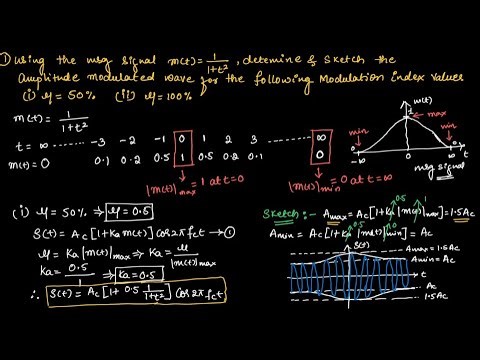 ① Using the msg signal m(t) = 1/1+t², detemine & sketch the
Amplitude modulated wave for the following Modulation index values
(i) μ = 50%  (ii) μ = 100%
m(t) = 1/1+t²
t = ∞ ........ -3 -2 -1 0 1 2 3 ........ ∞
m(t) = 0 0.1 0.2 0.5 1 0.5 0.2 0.1 0
|m(t)|max = 1 at t=0
|m(t)|min = 0 at t=∞
m(t)
max
1
min
min
0
0
-∞
0
∞
t
msg signal
(i) μ = 50% ⇒ μ = 0.5
S(t) = Ac[1+Ka m(t)] cos2πfct → ①
μ = Ka |m(t)|max ⇒ Ka = μ/|m(t)|max
Ka = 0.5/1 ⇒ Ka = 0.5
∴ S(t) = Ac[1 + 0.5 1/1+t²] Cos2πfct
Sketch :- Amax = Ac[1+Ka |m(t)|max] = 1.5Ac
0.5
1
Amin = Ac[1+Ka |m(t)|min] = Ac
0.5
0
S(t)
Amax = 1.5Ac
Amin = Ac
t
Ac
1.5Ac